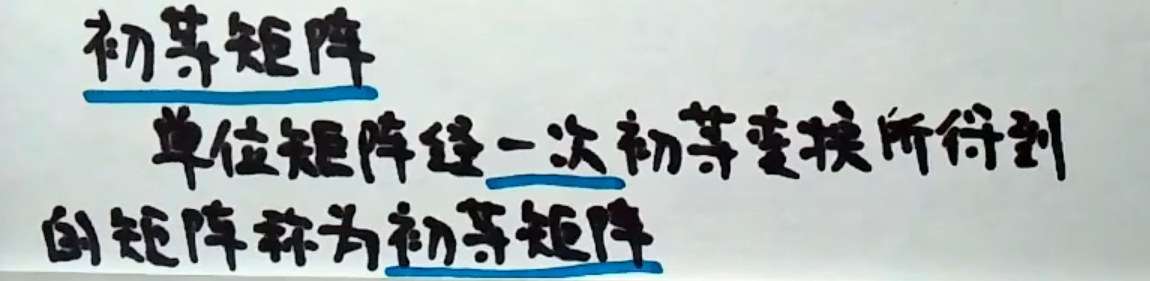 初等矩阵
单位矩阵经一次初等变换所得到
的矩阵称为初等矩阵